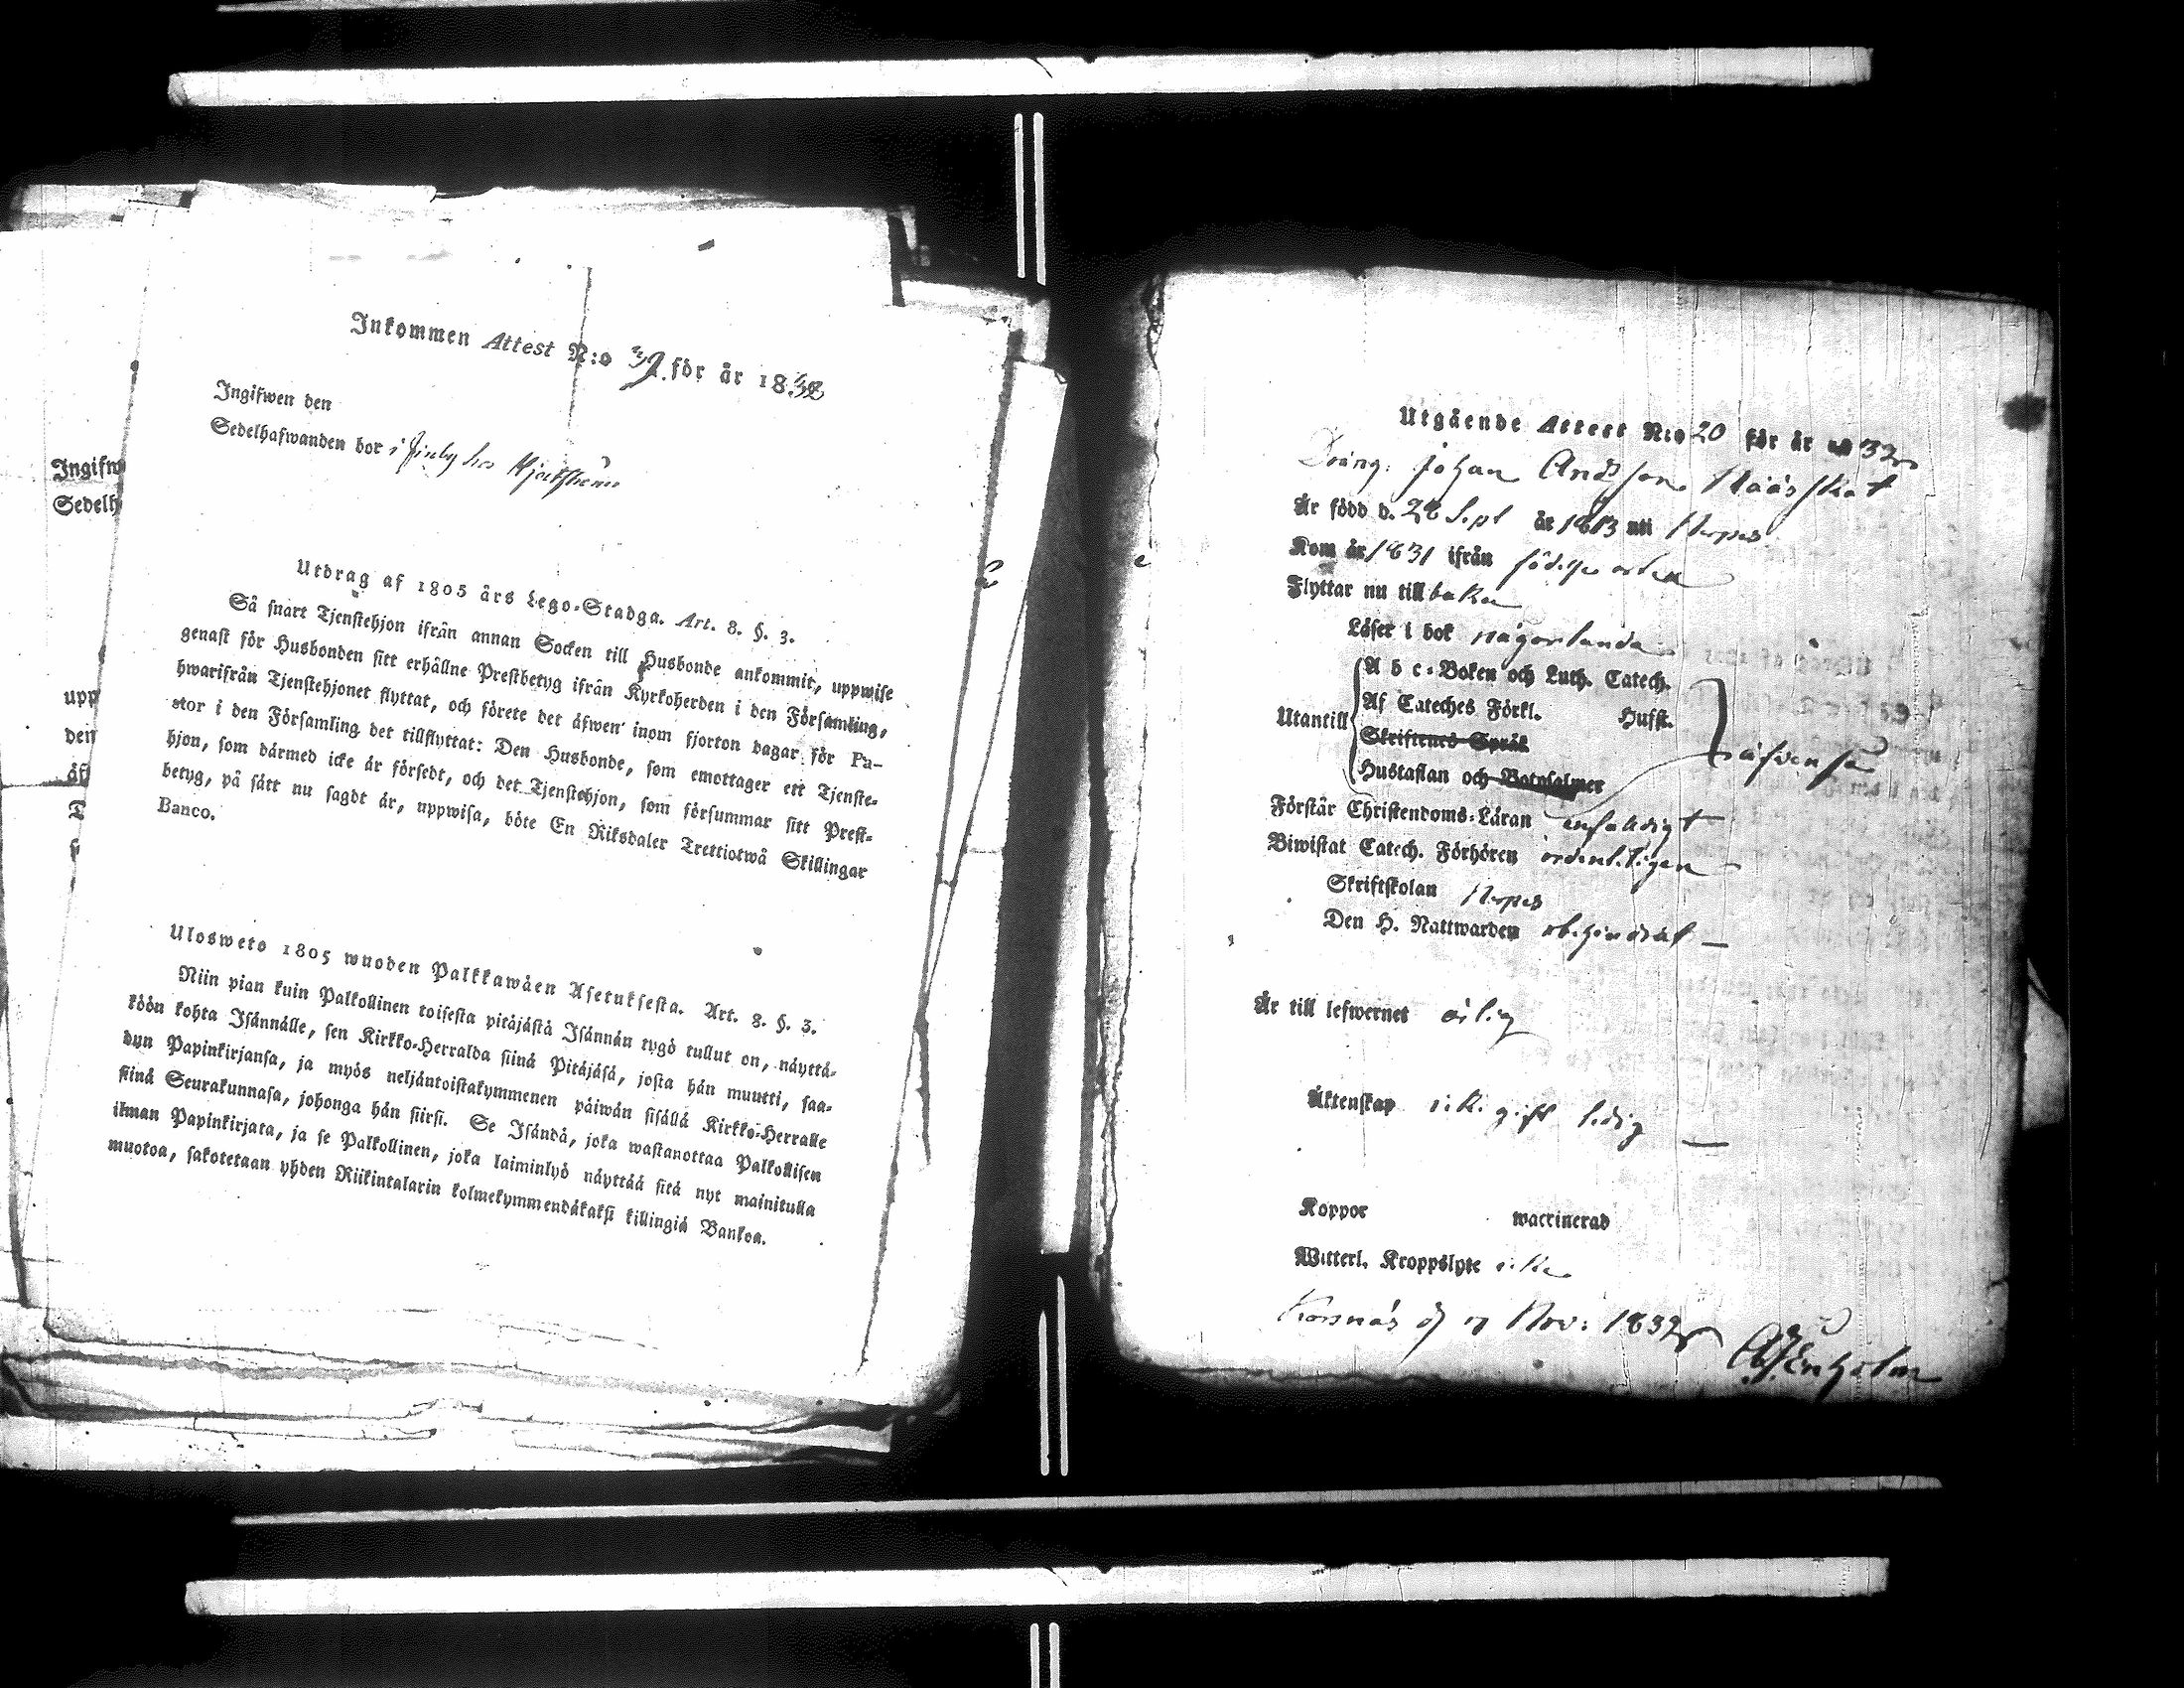 Ingifw
Sedelh
upp
den
åf
T
Inkommen Attest N:o 39 för år 1832
Ingifwen den
Sedelhafwanden bor i Finby hos
Utdrag af 1805 års Lego-Stadga. Art. 8. §. 3.
Så snart Tjenstehjon ifrån annan Socken till Husbonde ankommit, uppwise
genast för Husbonden sitt erhållne Prestbetyg ifrån Kyrkoherden i den Församling,
hwarifrån Tjenstehjonet flyttat, och förete det äfwen inom fjorton dagar för Pa-
stor i den Församling det tillflyttat: Den Husbonde, som emottager ett Tjenste-
hjon, som därmed icke är försedt, och det Tjenstehjon, som försummar sitt Prest-
betyg, på sätt nu sagdt är, uppwisa, böte En Riksdaler Trettiotwå Skillingar
Banco.
Ulosweto 1805 wuoden Palkkawåen Asetuksesta. Art. 8. §. 3.
Niin pian kuin Palkollinen toisesta pitåjåstå Isånnån tygö tullut on, nåyttå-
köön kohta Isånnålle, sen Kirkko-Herralda siinå Pitåjåså, josta hån muutti, saa-
dun Papinkirjansa, ja myös neljåntoistakymmenen påiwån sisållå Kirkko-Herralle
siinå Seurakunnasa, johonga hån siirsi. Se Isåndå, joka wastanottaa Palkollisen
ilman Papinkirjata, ja se Palkollinen, joka laiminlyö nåyttåå sitå nyt mainitulla
muotoa, sakotetaan yhden Riikintalarin kolmekymmendåkaksi killingiå Bankoa.
Utgående Attest N:o 20 för år 1832
Dräng. Johan Andsson Näässkat
Är född d. 28 Sept år 1813 uti Nerpes
Kom år 1831 ifrån födelse orten
Flyttar nu till baka
Läser i bok någorlunda
A b c-Boken och Luth. Catech.
Af Cateches Förkl. Husst.
Utantill
Skriftenes Språk
Hustaflan och Botpsalmer
äfvenså
Förstår Christendoms-Läran enfaldigt
Biwistat Catech. Förhören ordentligen
Skriftskolan Nerpes
Den H. Nattwarden obehindrat
Är till lefwernet ärlig
Äktenskap ick. gift ledig
Koppor waccinerad
Witterl. Kroppslyte icke
Korsnäs d. 17 Nov: 1832